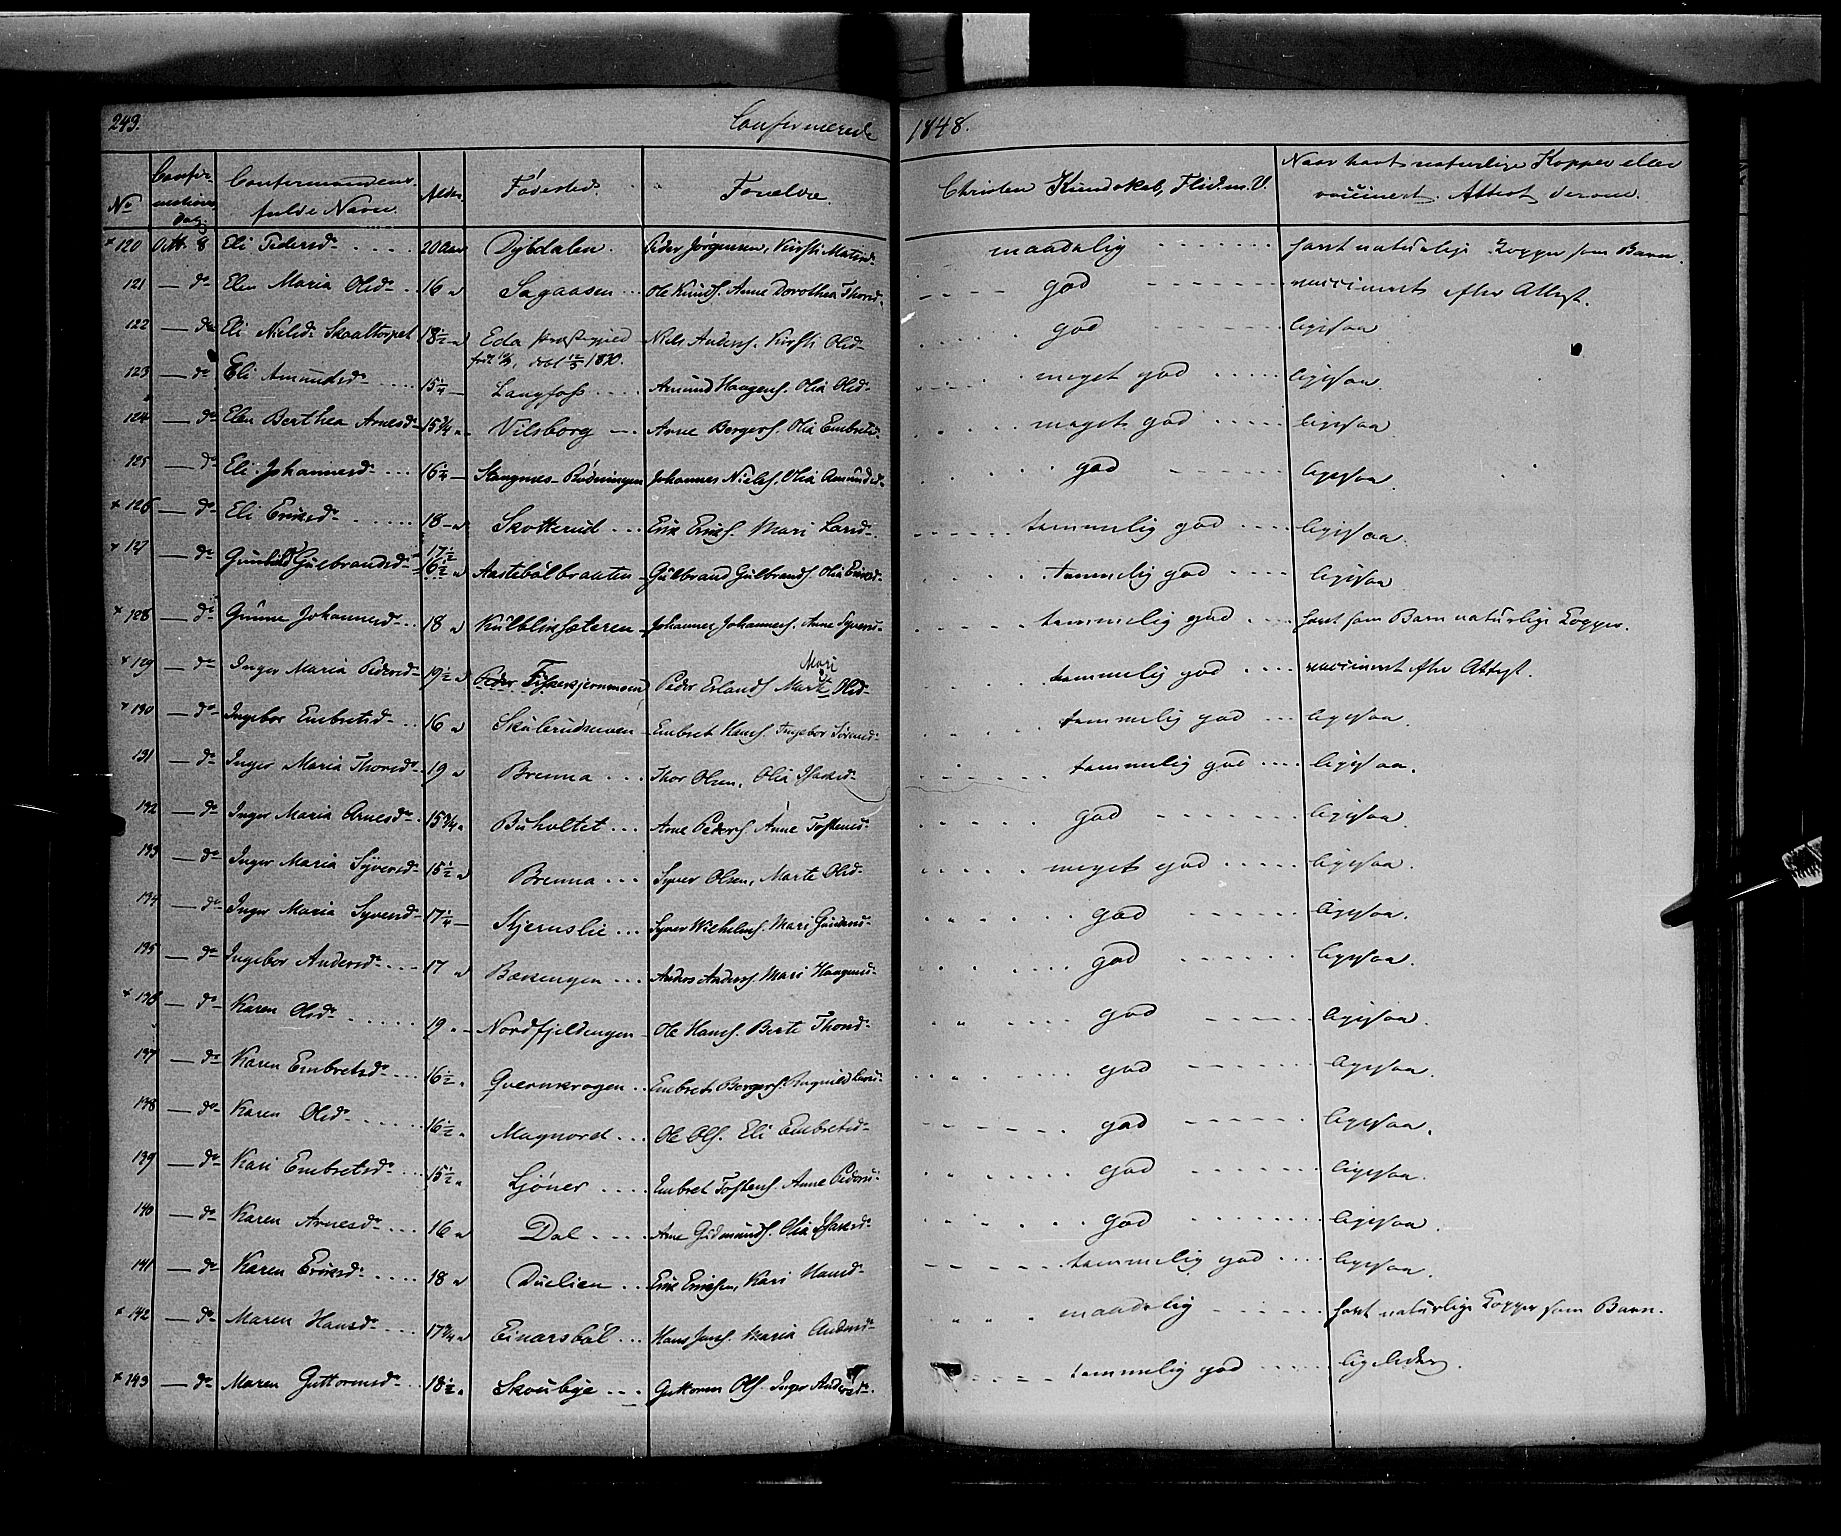 249. Confirmerede 1848.
No Confirmations Dag. Confirmandens fulde Navn. Alder. Fødested. Forældre. Christen Kundskab, Flid m. V. Naar havt naturlige Kopper eller vaccineret. Attest derom.
* 120 Octb 8 Eli Pedersdr .... 20 Aar Dybdalen. Peder Jørgensen, Kirsti Matisdr maadelig havt naturlige Kopper som Barn.
121 — do Elen Maria Olsdr .. 16 " Sagaasen ... Ole Knuds. Anne Dorothea Thorsdr god vaccineret efter Attest.
122 — do Eli Nielsdr Skaaltorpet 18 1/2 " Eda Præstegjed Niels Anders. Kirsti Olsdr god ligesaa
123 — do Eli Amundsdr .... 15 1/4 — Langfoss .... Amund Haagens. Olia Olsdr meget god ligesaa
124 — do Elen Berthea Arnesdr 15 3/4 " Vilsborg — Arne Bergers. Olia Embretsdr meget god ligesaa
125 — do Eli Johannesdr ... 16 1/4 — Stangnes-Rødningen Johannes Niels. Olia Amundsdr god ligesaa
* 126 — do Eli Eriksdr ..... 18 — " Skotterud ... Erik Eriks. Mari Larsdr temmelig god ligesaa
* 127 — do Gunhild Gulbrandsdr 17 1/2 16 1/2 " Aastebølbraaten Gulbrand Gulbrands. Olia Eriksdr temmelig god ligesaa
* 128 — do Gunne Johannesdr .. 18 " Kulblikseteren Johannes Johannes. Anne Syversdr temmelig god havt som Barn naturlige Kopper.
* 129 — do Inger Maria Pedersdr 19 1/2 " Peder Fiskerkjernmoen Peder Erlands. Marte Mari Olsdr temmelig god vaccineret efter Attest.
* 130 — do Ingebor Embretsdr .. 16 " Skulerudmoen Embret Hans. Ingebor Simensdr temmelig god ligesaa.
131 — do Inger Maria Thorsdr 19 " Brenna ... Thor Olsen, Olia Isaksdr temmelig god ligesaa.
132 — do Inger Maria Arnesdr 15 3/4 " Buholtet ... Arne Peders. Anne Tostensdr god ligesaa.
133 — do Inger Maria Syversdr 15 1/2 " Brenna ... Syver Olsen, Marte Olsdr meget god ligesaa.
134 — do Inger Maria Syversdr 17 1/4 — Stjernslie ... Syver Wilhelms. Mari god ligesaa.
135 — do Ingebor Andersdr ... 17 " Bækengen ... Anders Anders. Mari Haagensdr god ligesaa.
* 136 — do Karen Olsdr ..... 19 " Nordfjeldengen Ole Hans. Berte Thorsdr god ligesaa.
137 — do Karen Embretsdr ... 16 1/2 " Qvernkrogen .. Embret Bergers. Ingnild Larsdr god ligesaa.
138 — do Karen Olsdr ..... 16 1/2 " Magnord ... Ole Ols. Eli Embretsdr god ligesaa.
139 — do Kari Embretsdr ... 15 1/2 " Ljøner .... Embret Tostens. Anne Pedersdr god ligesaa.
140 — do Karen Arnesdr ... 16 " Dal .... Arne Gudmunds. Olia Isaksdr god ligesaa.
141 — do Karen Eriksdr .... 18 " Duelien ... Erik Eriksen, Kari Hansdr temmelig god ligesaa.
* 142 — do Maren Hansdr .... 17 3/4 " Einarsbøl ... Hans Jens. Maria Andersdr maadelig havt naturlige Kopper som Barn.
* 143 — do Maren Guttormsdr .. 18 1/2 " Skoubye ... Guttorm Ols. Inger Andersdr. temmelig god ligeledes.